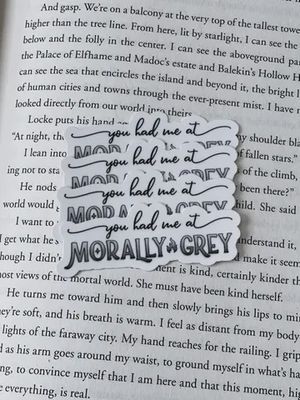 And gasp. We're on a balcony at the very top of the tallest towe
higher than the tree line. From here, lit by starlight, I can see the
below and the folly in the center. I can see the aboveground par
the Palace of Elfhame and Madoc's estate and Balekin's Hollow H
can see the sea that encircles the island and beyond it, the bright l
of human cities and towns through the ever-present mist. I have n
looked directly from our world into theirs.
Locke puts his hand
"At night, th
shoulder bla
fallen stars."
I lean into
of the climb,
ing not to sta
He nods
been there?"
world would
child. She said
I want to
I get what he s
understand it,
though I didn'
make it seem
ent is kind, certainly kinder th
most views of the mortal world. She must have been kind herself.
He turns me toward him and then slowly brings his lips to min
they're soft, and his breath is warm. I feel as distant from my body
lights of the faraway city. My hand reaches for the railing. I grip
d as his arm goes around my waist, to ground myself in what's ha
ng, to convince myself that I am here and that this moment, hig
e everything, is real.
you had me at
MORALLY GREY
you had me at
MORALLY GREY
you had me at
MORA GREY
you had me at
MORALLY GREY